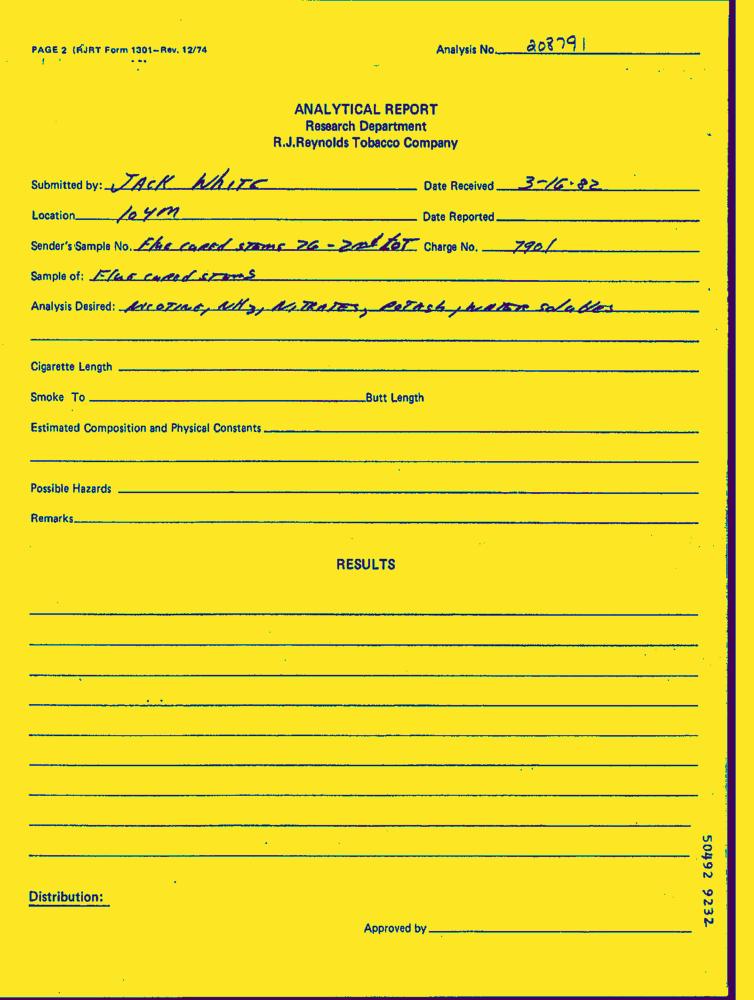 PAGE 2 (RJRT Form 1301–Rev. 12/74
Analysis No. 208791
ANALYTICAL REPORT
Research Department
R.J.Reynolds Tobacco Company
Submitted by: JACK WHITE Date Received 3-16-82
Location 104M Date Reported
Sender's Sample No. Flue cured stems 76 - 2nd LOT Charge No. 7901
Sample of: Flue cured stems
Analysis Desired: NICOTINE, NH3, NITRATES, POTASH, WATER solubles
Cigarette Length
Smoke To Butt Length
Estimated Composition and Physical Constants
Possible Hazards
Remarks
RESULTS
Distribution:
Approved by
50492 9232